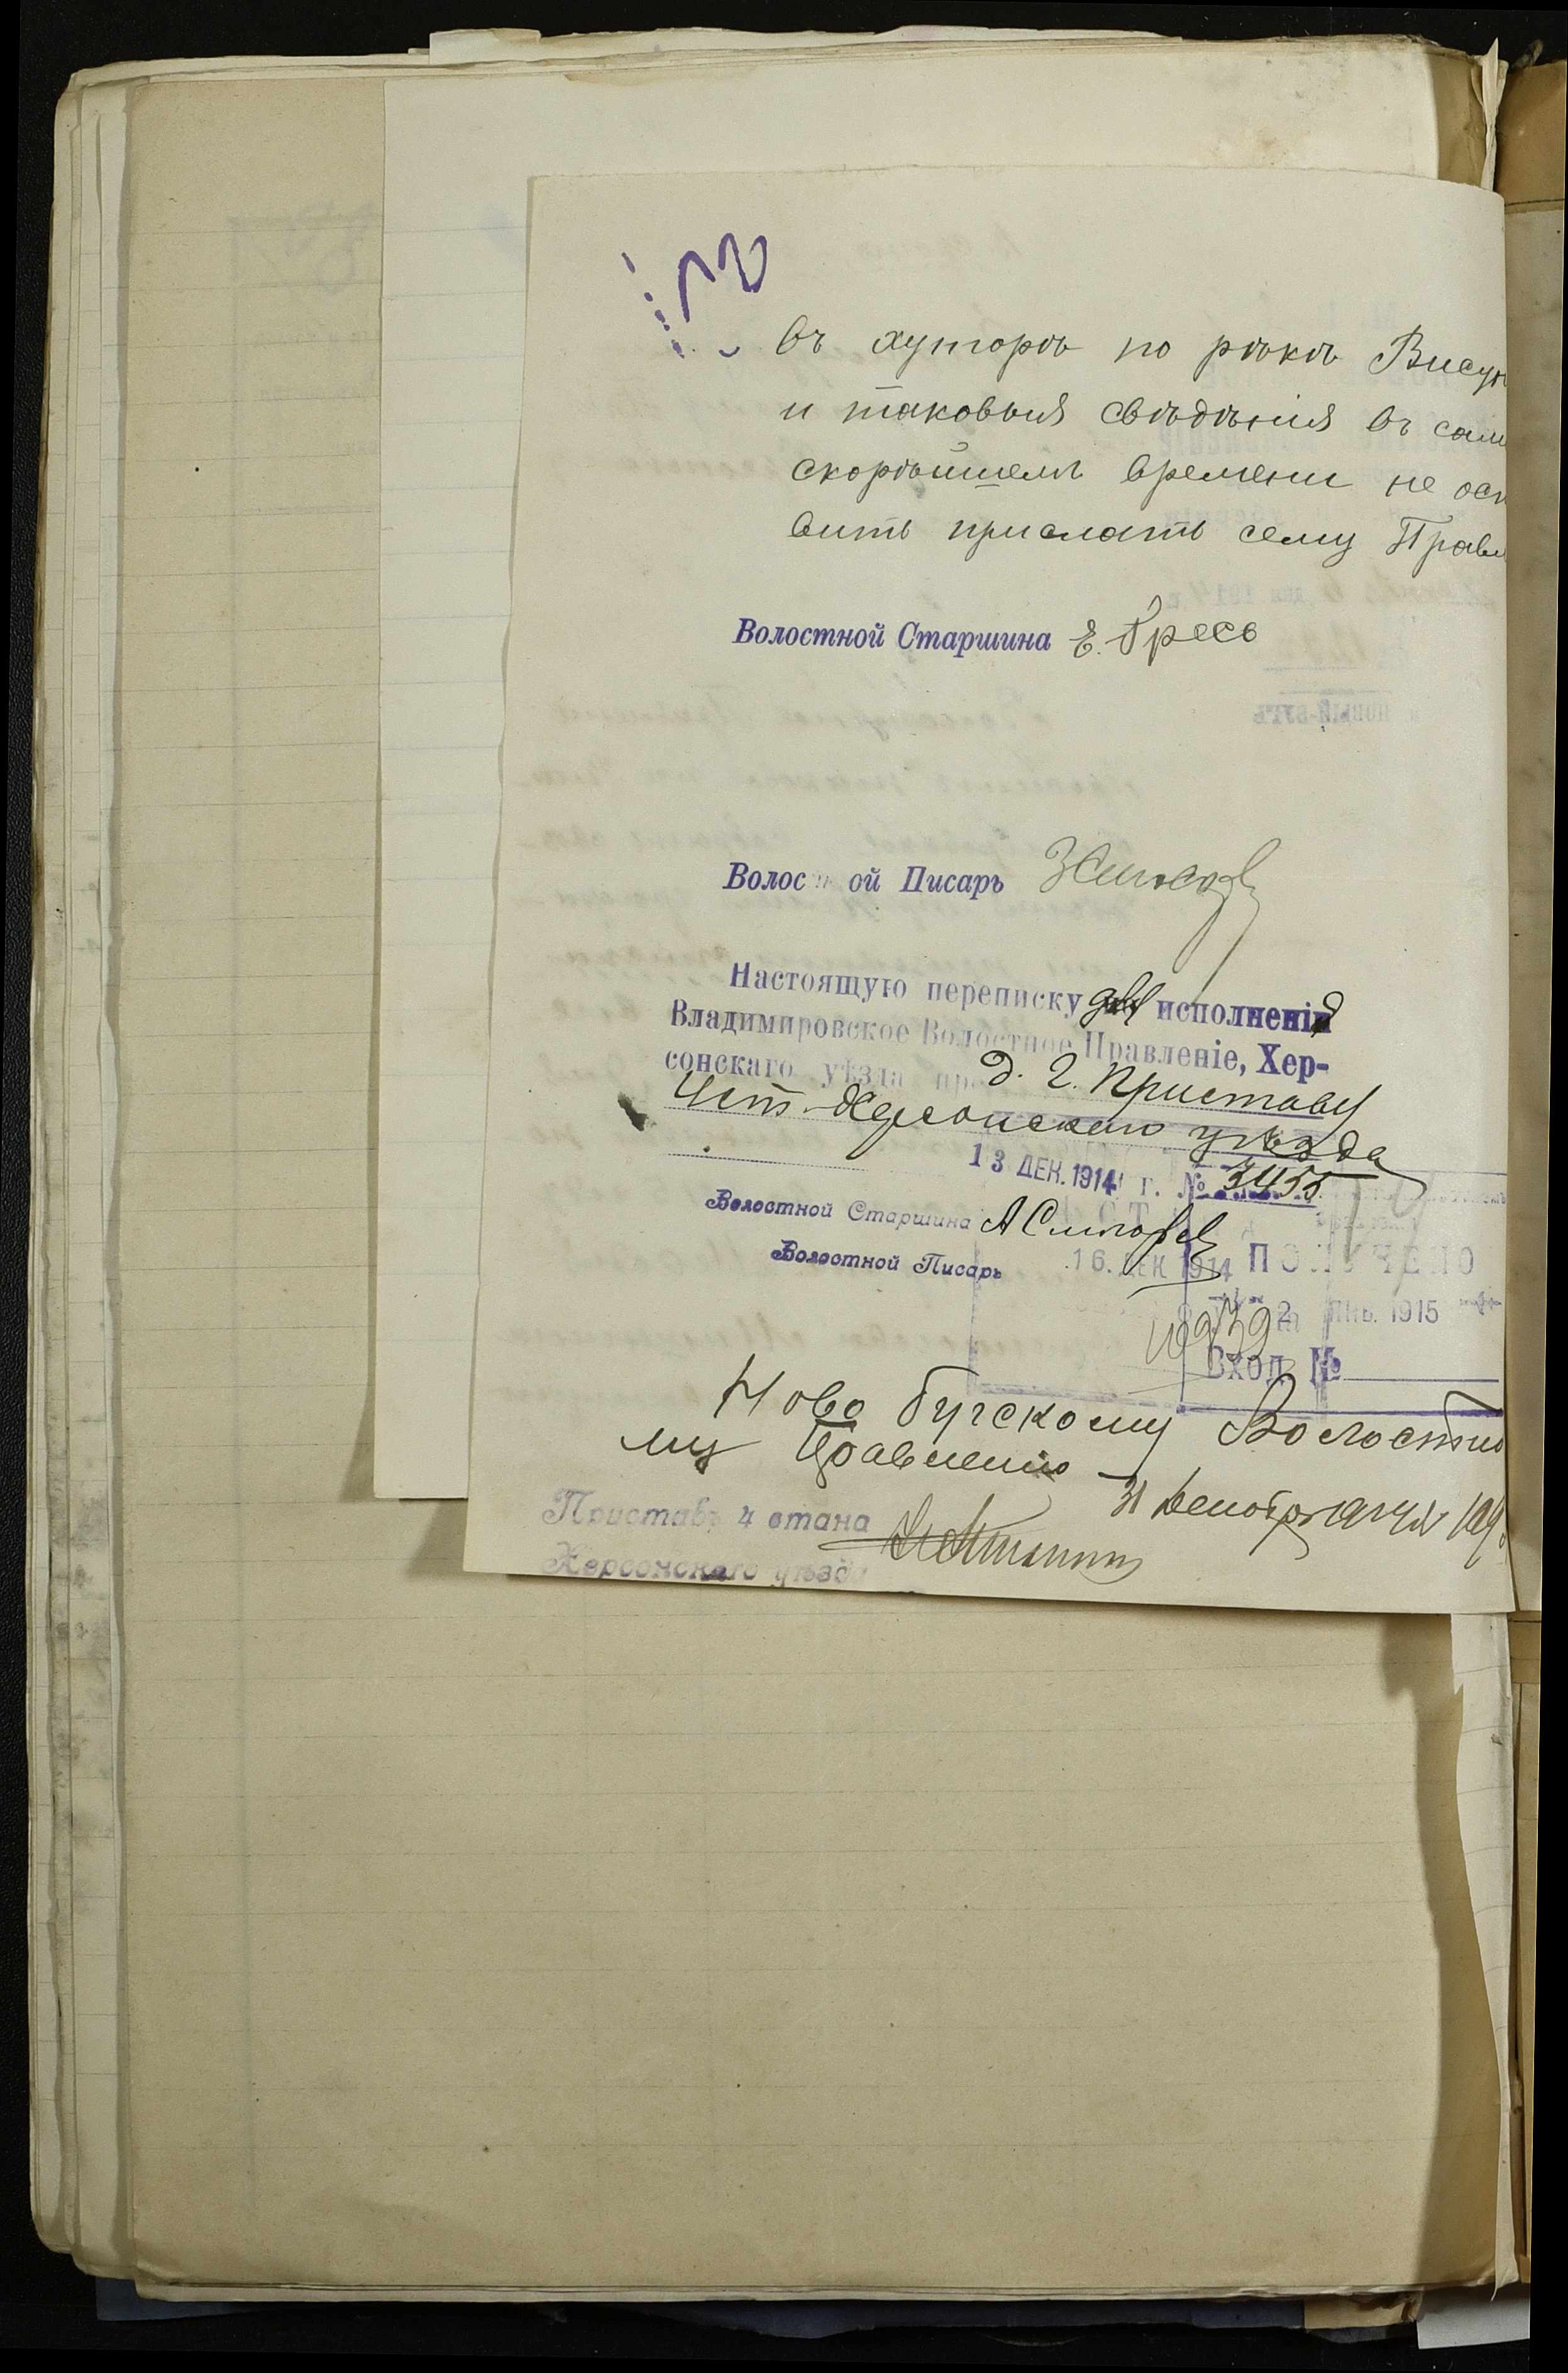 въ хуторѣ по рѣкѣ Висун
и таковыя свѣдѣнія въ сам
скорѣйшемъ времени не ост
вить прислать сему Правл
Волостной Старшина Е. Гресь
Волос н ой Писарь
Настоящую переписку для исполненія
Владимировское Волостное Правленіе, Хер-
сонскаго уѣзда пр Д. 2. Приставу
4 ст. Херсонскаго уѣзда
13 ДЕК. 1914 г. № 3455
Волостной Старшина
Волостной Писарь
16. ДЕК 1914 ПОЛУЧЕНО
2 ЯНВ. 1915
10939
Вход. №
Ново Бугскому Волостно
му Правленію
31 Декабря 1914 г. №
Приставъ 4 стана
Херсонскаго уѣзда